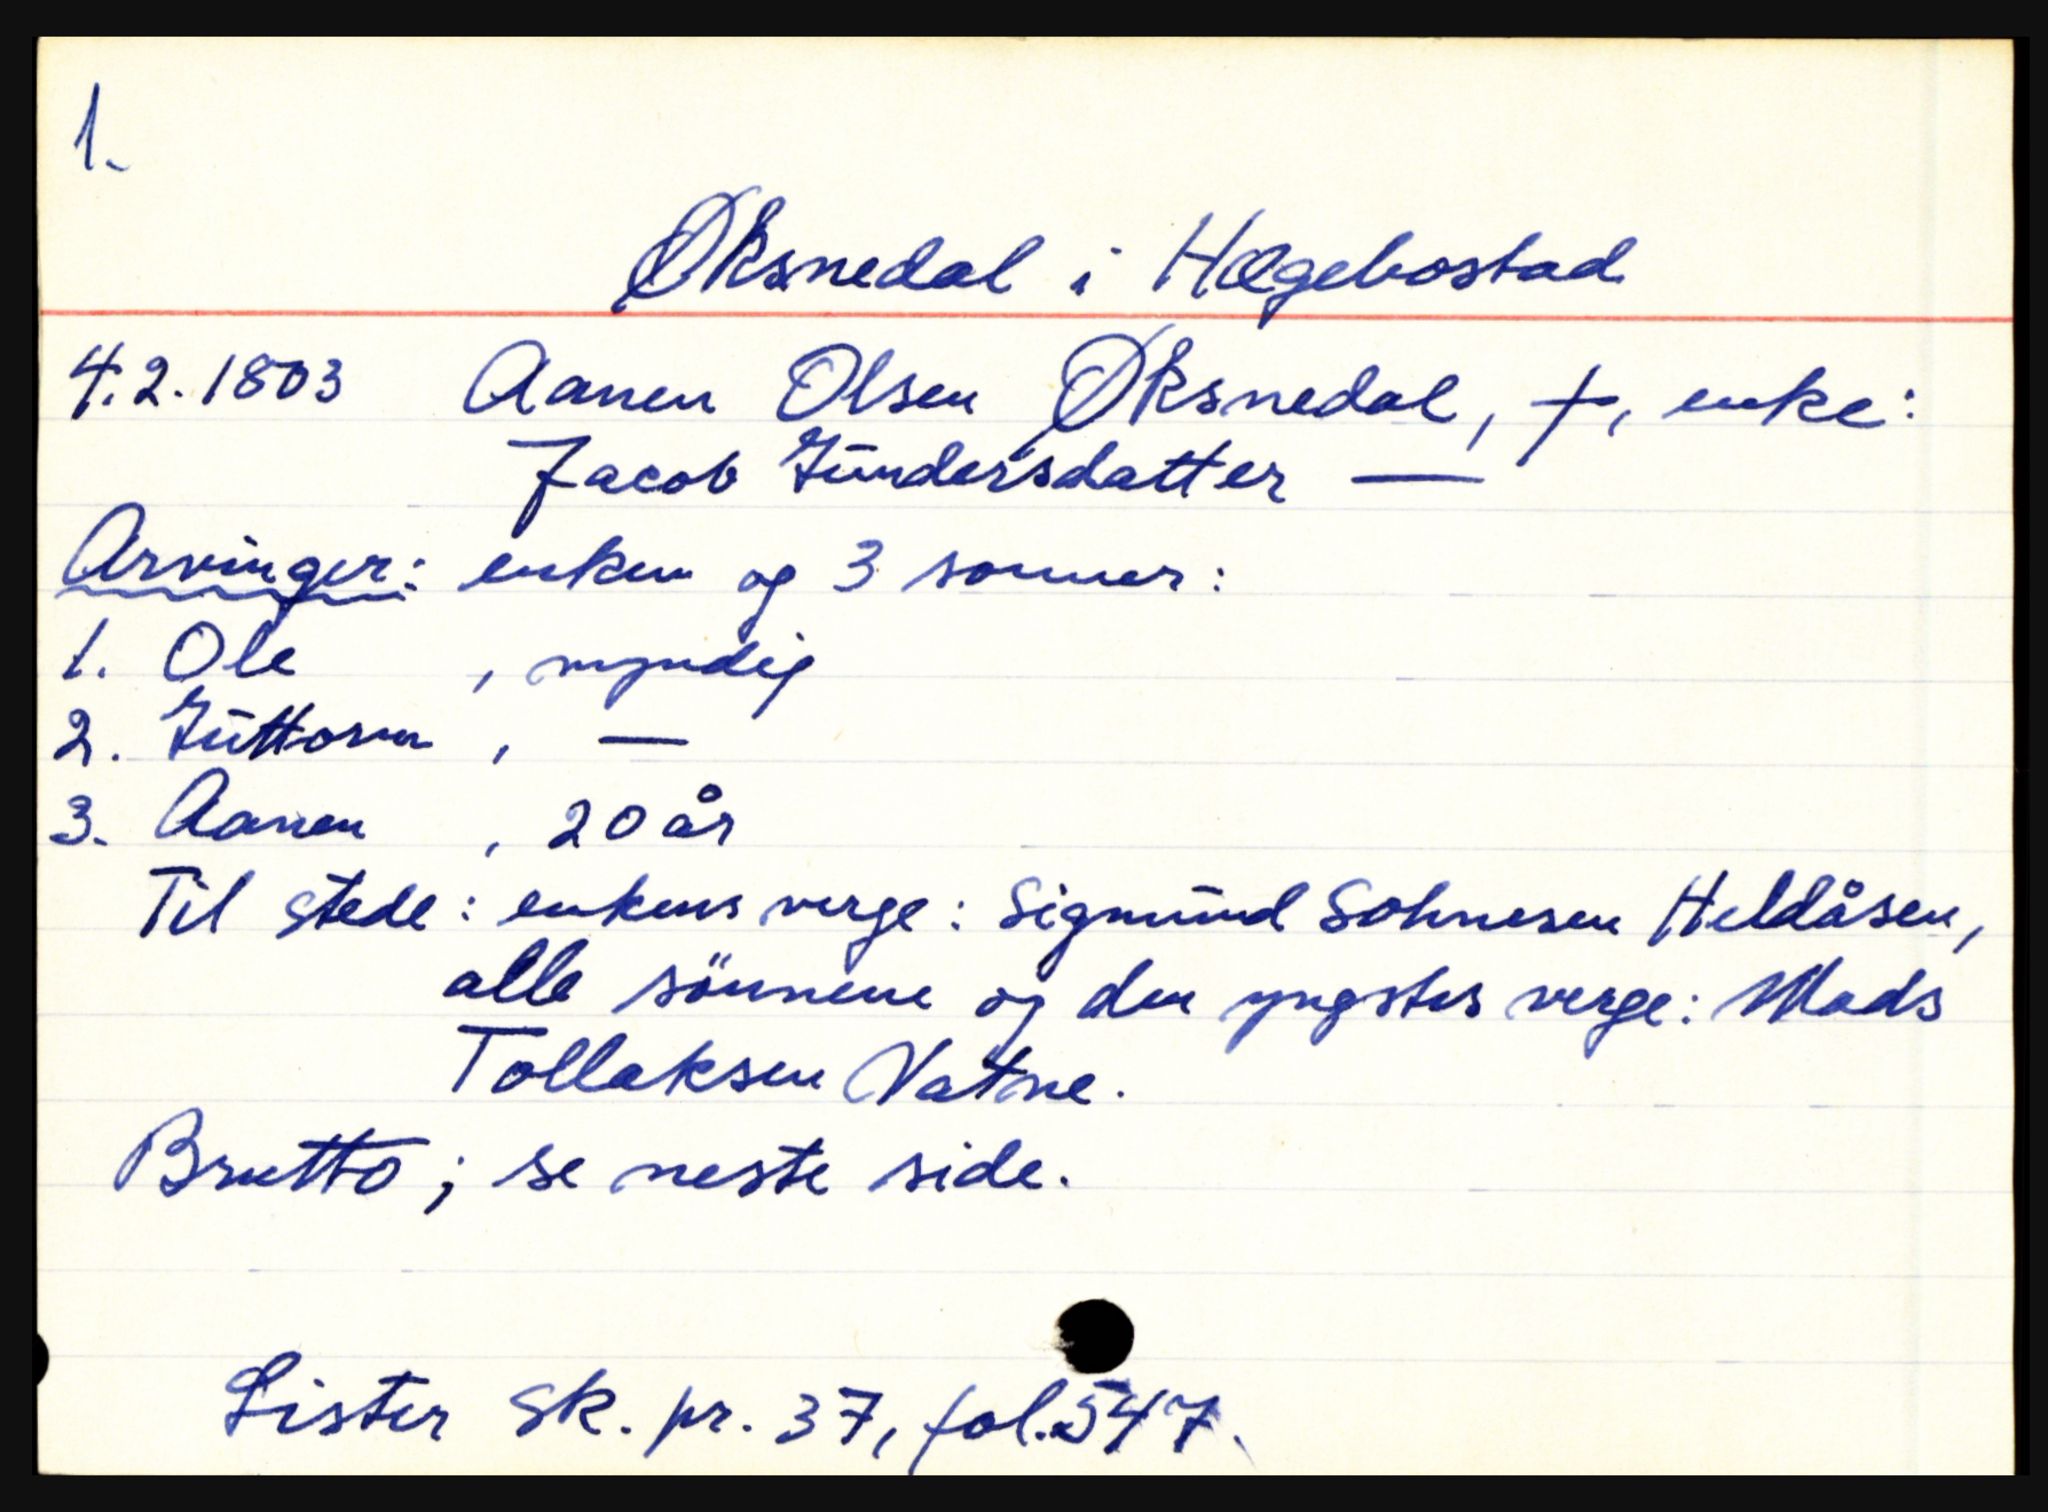 1.
Øksnedal i Hægebostad
4.2.1803 Aanen Olsen Øksnedal, +, enke:
Jacob Gundersdatter —
Arvinger: enken og 3 sønner:
1. Ole , myndig
2. Guttorm , —
3. Aanen , 20 år
Til stede: enkens verge: Sigmund Sohnesen Heldåsen,
alle sönnene og den yngstes verge: Mads
Tollaksen Vatne.
Brutto; se neste side.
Lister sk. pr. 37, fol. 547.